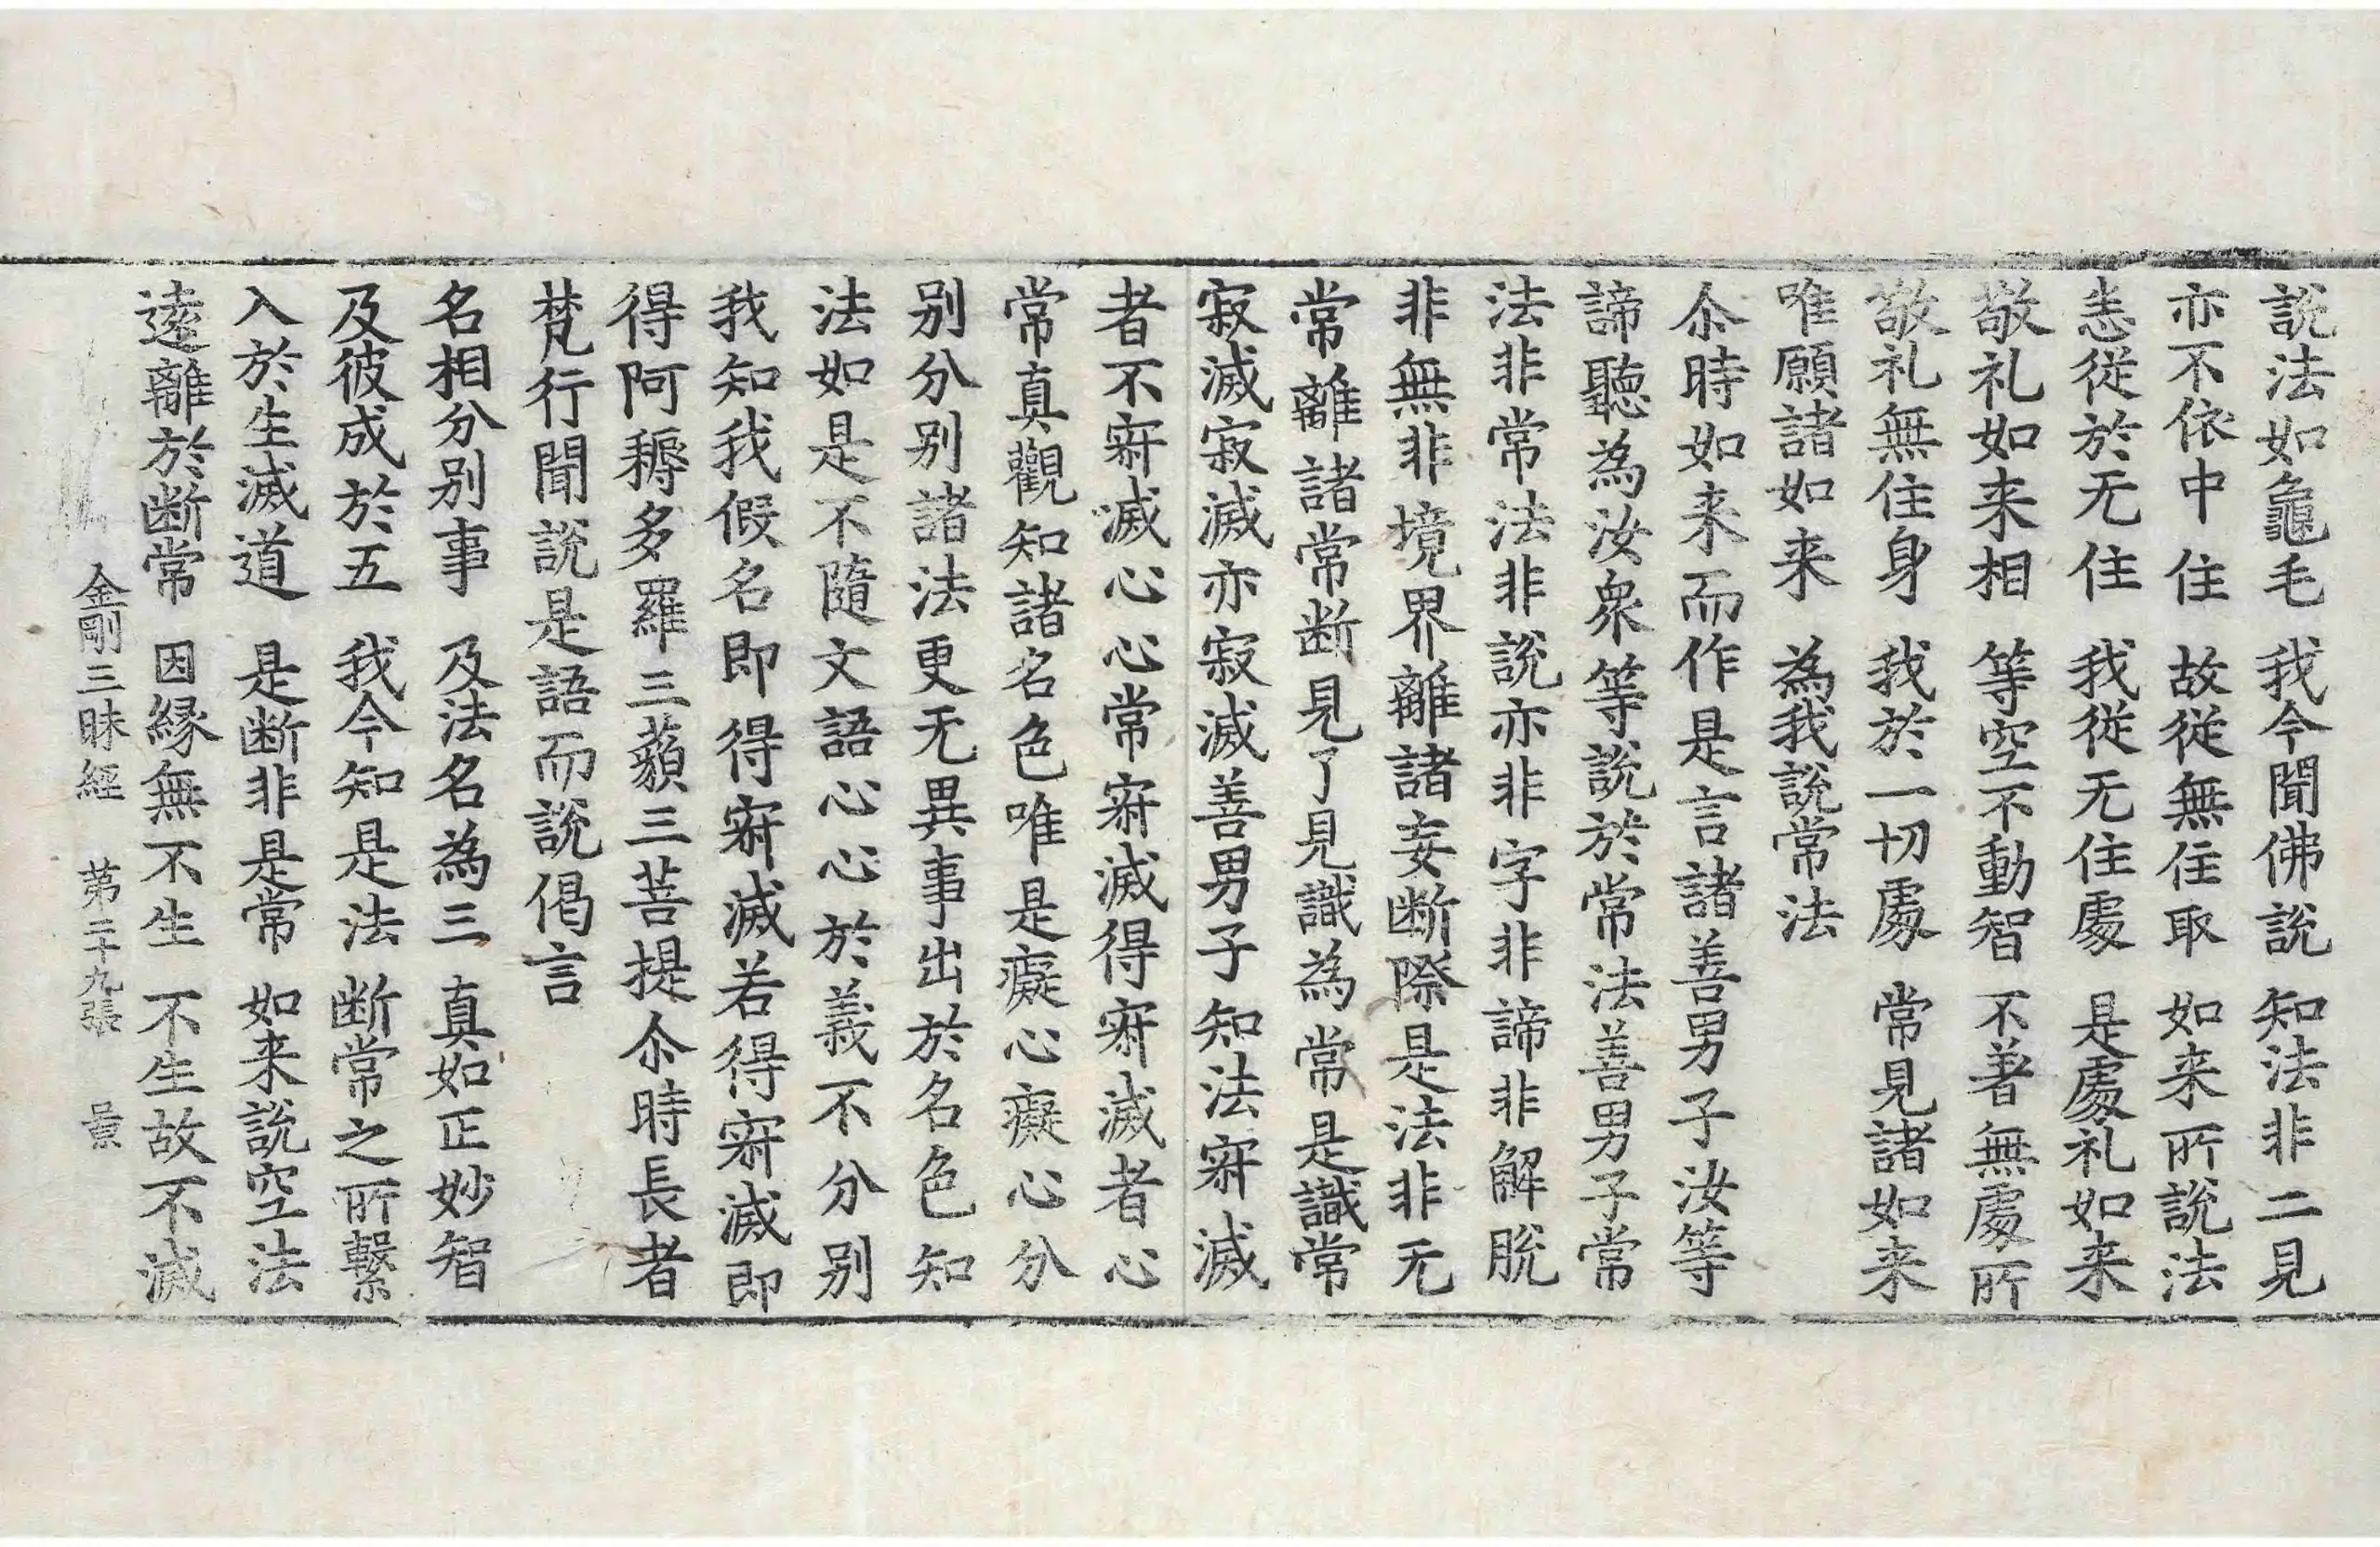 說法如龜毛　我今聞佛說　知法非二見
亦不依中住　故從無住取　如来所說法
悉從於无住　我從无住處　是處礼如来
敬礼如来相　等空不動智　不著無處所
敬礼無住身　我於一切處　常見諸如来
唯願諸如来　為我說常法
尒時如来而作是言諸善男子汝等
諦聽為汝衆等說於常法善男子常
法非常法非說亦非字非諦非解脫
非無非境界離諸妄断際是法非无
常離諸常断見了見識為常是識常
寂滅寂滅亦寂滅善男子知法㝛滅
者不㝛滅心心常㝛滅得㝛滅者心
常真觀知諸名色唯是癡心癡心分
别分别諸法更无異事出於名色知
法如是不隨文語心心於義不分别
我知我假名即得㝛滅若得㝛滅即
得阿耨多羅三藐三菩提尒時長者
梵行聞說是語而說偈言
名相分别事　及法名為三　真如正妙智
及彼成於五　我今知是法　断常之所繫
入於生滅道　是断非是常　如来說空法
逺離於断常　因緣無不生　不生故不滅
金剛三昧經　苐二十九張